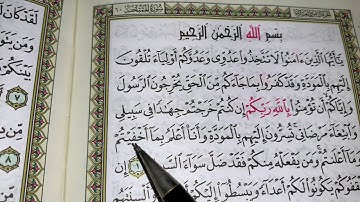 بِسْمِ اللَّهِ الرَّحْمَٰنِ الرَّحِيمِ
يَا أَيُّهَا الَّذِينَ ءَامَنُوا لَا تَتَّخِذُوا عَدُوِّي وَعَدُوَّكُمْ أَوْلِيَاءَ تُلْقُونَ
إِلَيْهِم بِالْمَوَدَّةِ وَقَدْ كَفَرُوا بِمَا جَاءَكُم مِّنَ الْحَقِّ يُخْرِجُونَ الرَّسُولَ
وَإِيَّاكُمْ أَن تُؤْمِنُوا بِاللَّهِ رَبِّكُمْ إِن كُنتُمْ خَرَجْتُمْ جِهَادًا فِي سَبِيلِي
وَابْتِغَاءَ مَرْضَاتِي تُسِرُّونَ إِلَيْهِم بِالْمَوَدَّةِ وَأَنَا أَعْلَمُ بِمَا أَخْفَيْتُمْ
وَمَا أَعْلَنتُمْ وَمَن يَفْعَلْهُ مِنكُمْ فَقَدْ ضَلَّ سَوَاءَ السَّبِيلِ
يَثْقَفُوكُمْ يَكُونُوا لَكُمْ أَعْدَاءً وَيَبْسُطُوا إِلَيْكُمْ